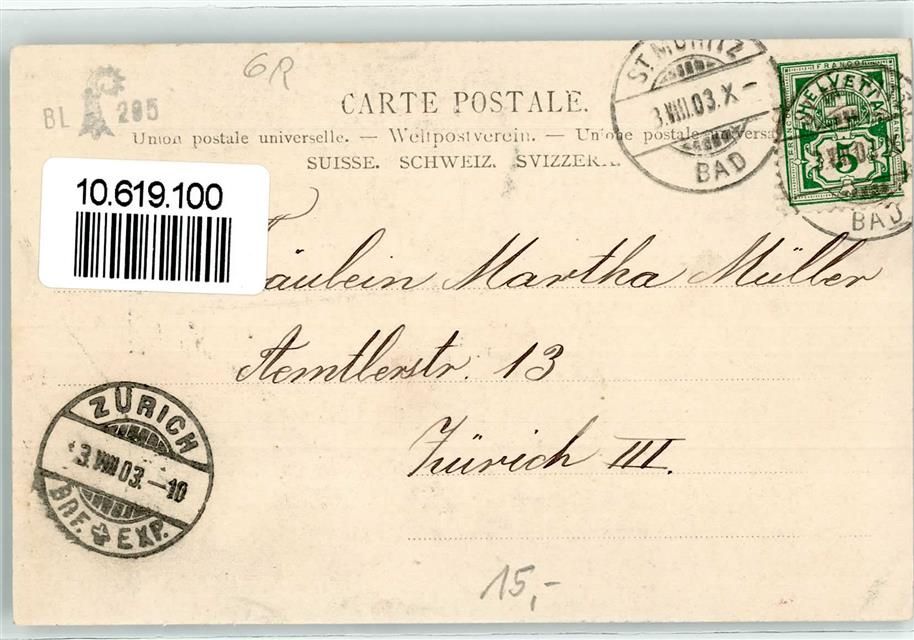 GR
BL 295
CARTE POSTALE.
Union postale universelle. — Weltpostverein. — Unione postale universa
SUISSE. SCHWEIZ. SVIZZERA.
ST. MORITZ
3.VIII.03.X-
BAD
FRANCO
HELVETIA
5
BAD
10.619.100
äulein Martha Müller
Aemtlerstr. 13
Zürich III.
ZÜRICH
3.VIII.03.-10
BRF. EXP.
15,-